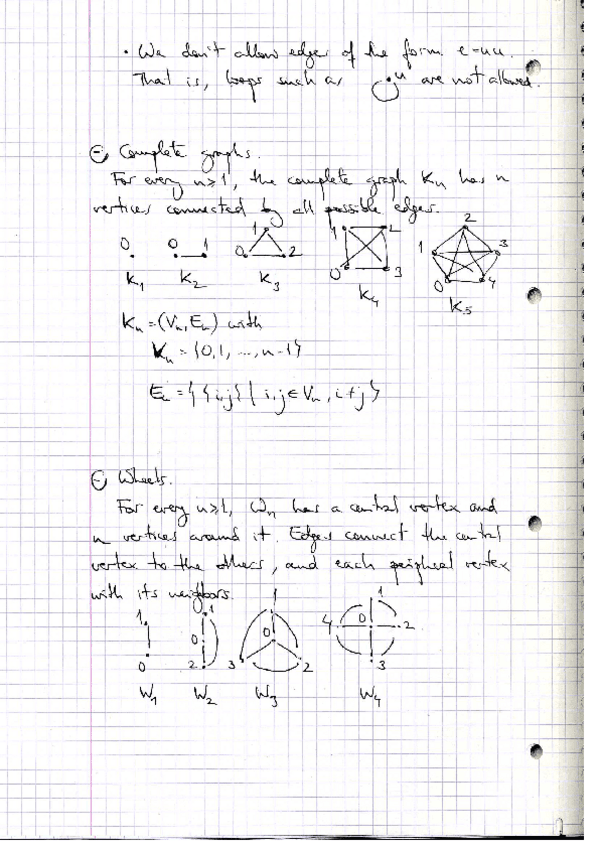 • We don't allow edges of the form e=uu.
That is, loops such as u are not allowed.
Complete graphs.
For every n≥1, the complete graph Kn has n
vertices connected by all possible edges.
0 0 1 0 1 2 0 1 2 3 0 1 2 3 4
K1 K2 K3 K4 K5
Kn = (Vn, En) with
Vn = {0,1, ..., n-1}
En = { {i,j} | i,j ∈ Vn, i≠j }
Wheels.
For every n≥1, Wn has a central vertex and
n vertices around it. Edges connect the central
vertex to the others, and each peripheral vertex
with its neighbors.
1 0 1 0 2 1 0 3 2 1 4 0 2 3
W1 W2 W3 W4